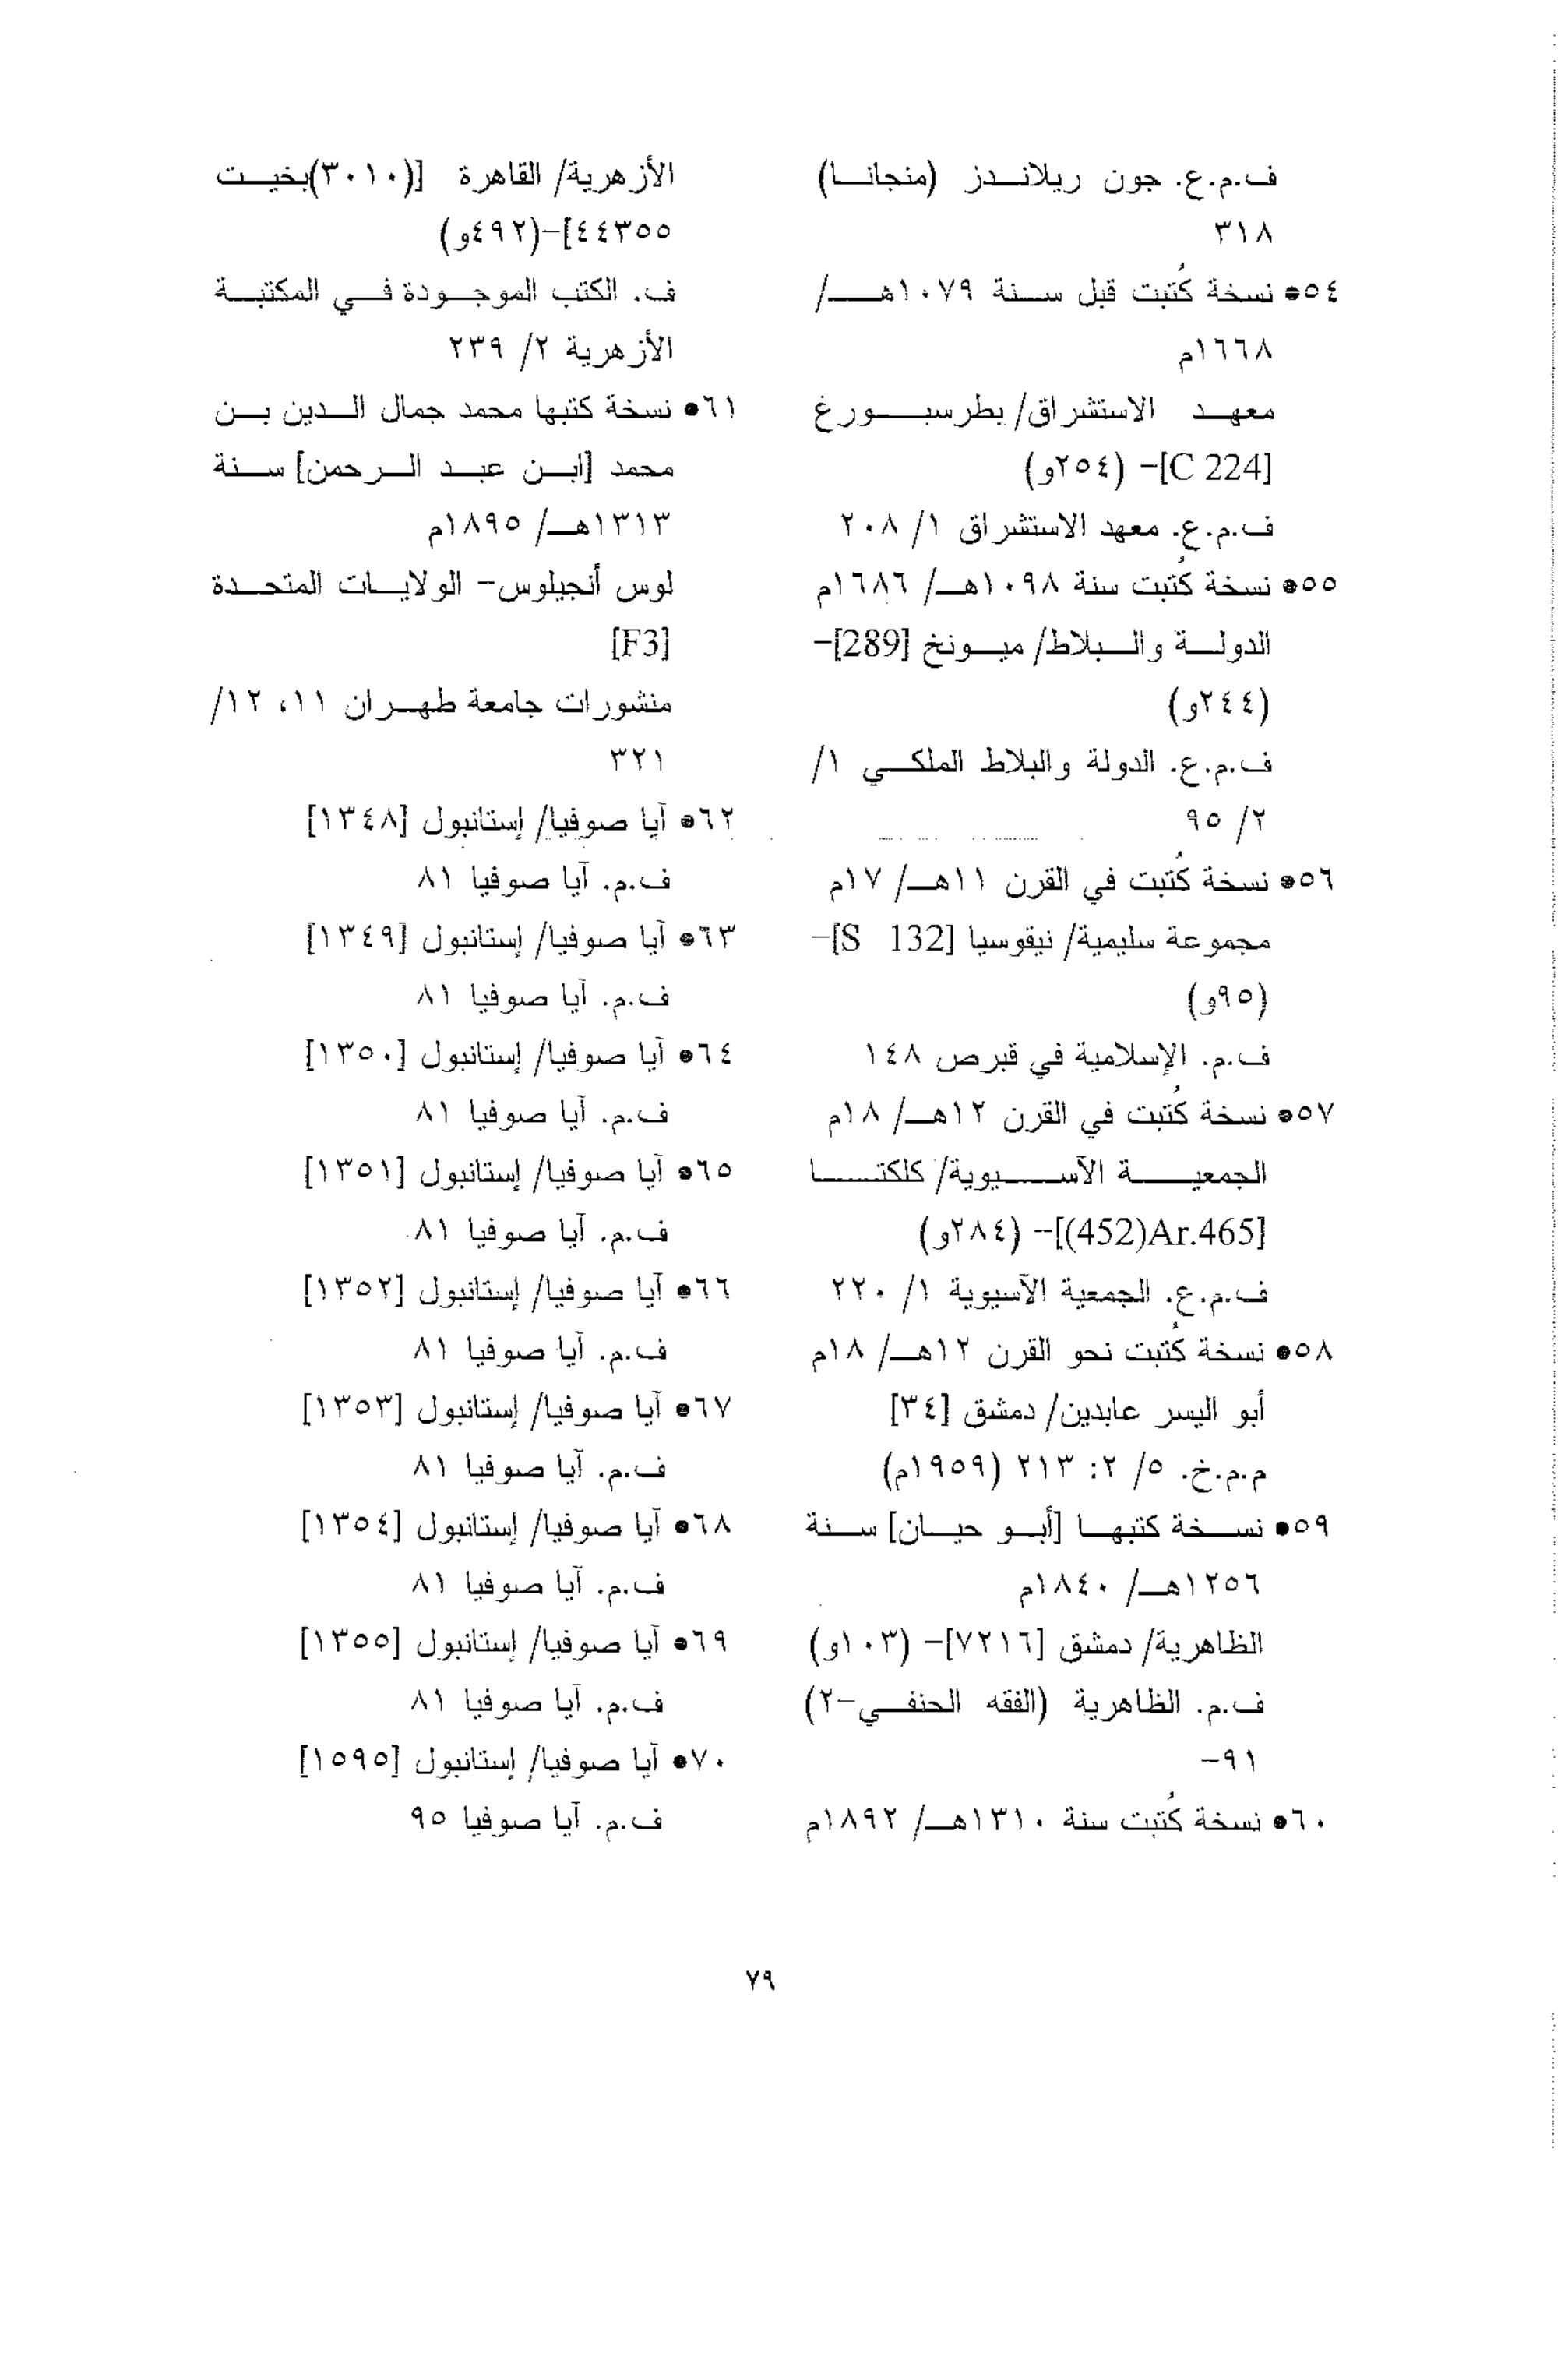 ف.م.ع. جون ريلاندز (منجانا)
٣١٨
٥٤• نسخة كُتبت قبل سنة ١٠٧٩هـ/
١٦٦٨م
معهد الاستشراق/ بطرسبورغ
[C 224]- (٢٥٤و)
ف.م.ع. معهد الاستشراق ١/ ٢٠٨
٥٥• نسخة كُتبت سنة ١٠٩٨هـ/ ١٦٨٦م
الدولة والبلاط/ ميونخ [289]-
(٢٤٤و)
ف.م.ع. الدولة والبلاط الملكي ١/
٢/ ٩٥
٥٦• نسخة كُتبت في القرن ١١هـ/ ١٧م
مجموعة سليمية/ نيقوسيا [S 132]-
(٩٥و)
ف.م. الإسلامية في قبرص ١٤٨
٥٧• نسخة كُتبت في القرن ١٢هـ/ ١٨م
الجمعية الآسيوية/ كلكتا
[Ar.465(452)]- (٢٨٤و)
ف.م.ع. الجمعية الآسيوية ١/ ٢٢٠
٥٨• نسخة كُتبت نحو القرن ١٢هـ/ ١٨م
أبو اليسر عابدين/ دمشق [٣٤]
م.م.خ. ٥/ ٢: ٢١٣ (١٩٥٩م)
٥٩• نسخة كتبها [أبو حيان] سنة
١٢٥٦هـ/ ١٨٤٠م
الظاهرية/ دمشق [٧٢١٦]- (١٠٣و)
ف.م. الظاهرية (الفقه الحنفي-٢)
٩١-
٦٠• نسخة كُتبت سنة ١٣١٠هـ/ ١٨٩٢م
الأزهرية/ القاهرة [(٣٠١٠)بخيت
٤٤٣٥٥]-(٤٩٢و)
ف. الكتب الموجودة في المكتبة
الأزهرية ٢/ ٢٣٩
٦١• نسخة كتبها محمد جمال الدين بن
محمد [ابن عبد الرحمن] سنة
١٣١٣هـ/ ١٨٩٥م
لوس أنجيلوس- الولايات المتحدة
[F3]
منشورات جامعة طهران ١١، ١٢/
٣٢١
٦٢• آيا صوفيا/ إستانبول [١٣٤٨]
ف.م. آيا صوفيا ٨١
٦٣• آيا صوفيا/ إستانبول [١٣٤٩]
ف.م. آيا صوفيا ٨١
٦٤• آيا صوفيا/ إستانبول [١٣٥٠]
ف.م. آيا صوفيا ٨١
٦٥• آيا صوفيا/ إستانبول [١٣٥١]
ف.م. آيا صوفيا ٨١
٦٦• آيا صوفيا/ إستانبول [١٣٥٢]
ف.م. آيا صوفيا ٨١
٦٧• آيا صوفيا/ إستانبول [١٣٥٣]
ف.م. آيا صوفيا ٨١
٦٨• آيا صوفيا/ إستانبول [١٣٥٤]
ف.م. آيا صوفيا ٨١
٦٩• آيا صوفيا/ إستانبول [١٣٥٥]
ف.م. آيا صوفيا ٨١
٧٠• آيا صوفيا/ إستانبول [١٥٩٥]
ف.م. آيا صوفيا ٩٥
٧٩